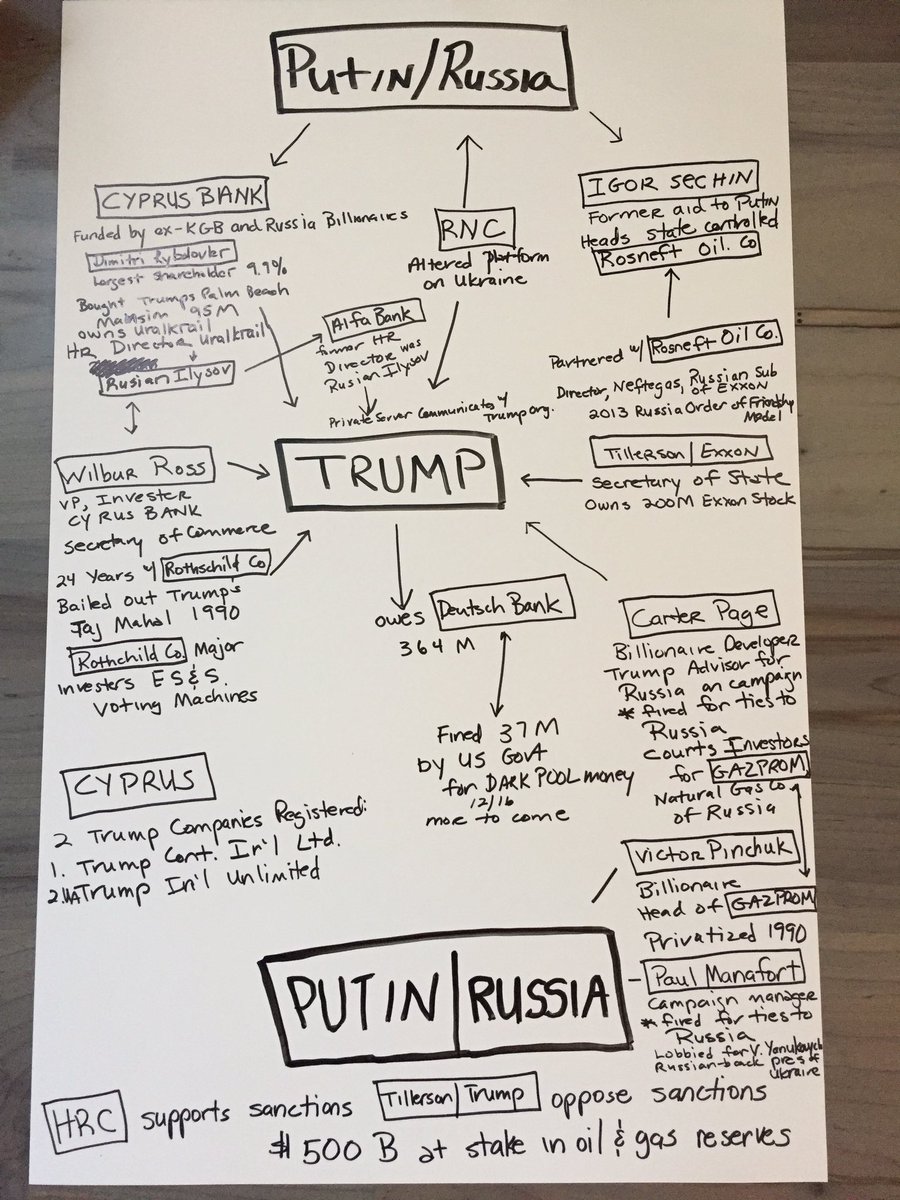 Putin/Russia
CYPRUS BANK
Funded by ex-KGB and Russia Billionaires
Dimitri Rybdovler
Largest shareholder 9.9%
Bought Trumps Palm Beach
95M
owns uralkrail
HR Director Uralkrail
Rusian Ilysov
Alfa Bank
former HR
Director was
Rusian Ilysov
Private Server Communicates w/
Trump org.
RNC
Altered platform
on Ukraine
IGOR SECHIN
Former aid to Putin
Heads state controlled
Rosneft Oil. Co
Partnered w/ Rosneft Oil Co.
Director, Neftegas, Russian Sub
of Exxon
2013 Russia Order of Friendship
Medel
Tillerson/EXXON
Secretary of State
owns 200M Exxon Stock
TRUMP
Wilbur Ross
VP, Invester
CYPRUS BANK
Secretary of Commerce
24 Years w/ Rothschild Co
Bailed out Trump's
Taj Mahal 1990
Rothchild Co Major
investers ES&S.
Voting Machines
owes Deutsch Bank
364 M
Fined 37M
by US Govt
for DARK POOL money
12/16
more to come
Carter Page
Billionaire Developer
Trump Advisor for
Russia on campaign
* fired for ties to
Russia
Courts Investors
for GAZPROM
Natural Gas Co
of Russia
CYPRUS
2 Trump Companies Registered:
1. Trump Cont. In'l Ltd.
2. Trump In'l Unlimited
Victor Pinchuk
Billionaire
Head of GAZPROM
Privatized 1990
Paul Manafort
Campaign manager
* fired for ties to
Russia
Lobbied for V. Yanukovych
Russian-back pres of
Ukraine
PUTIN/RUSSIA
HRC supports sanctions Tillerson/Trump oppose sanctions
$500 B at stake in oil & gas reserves